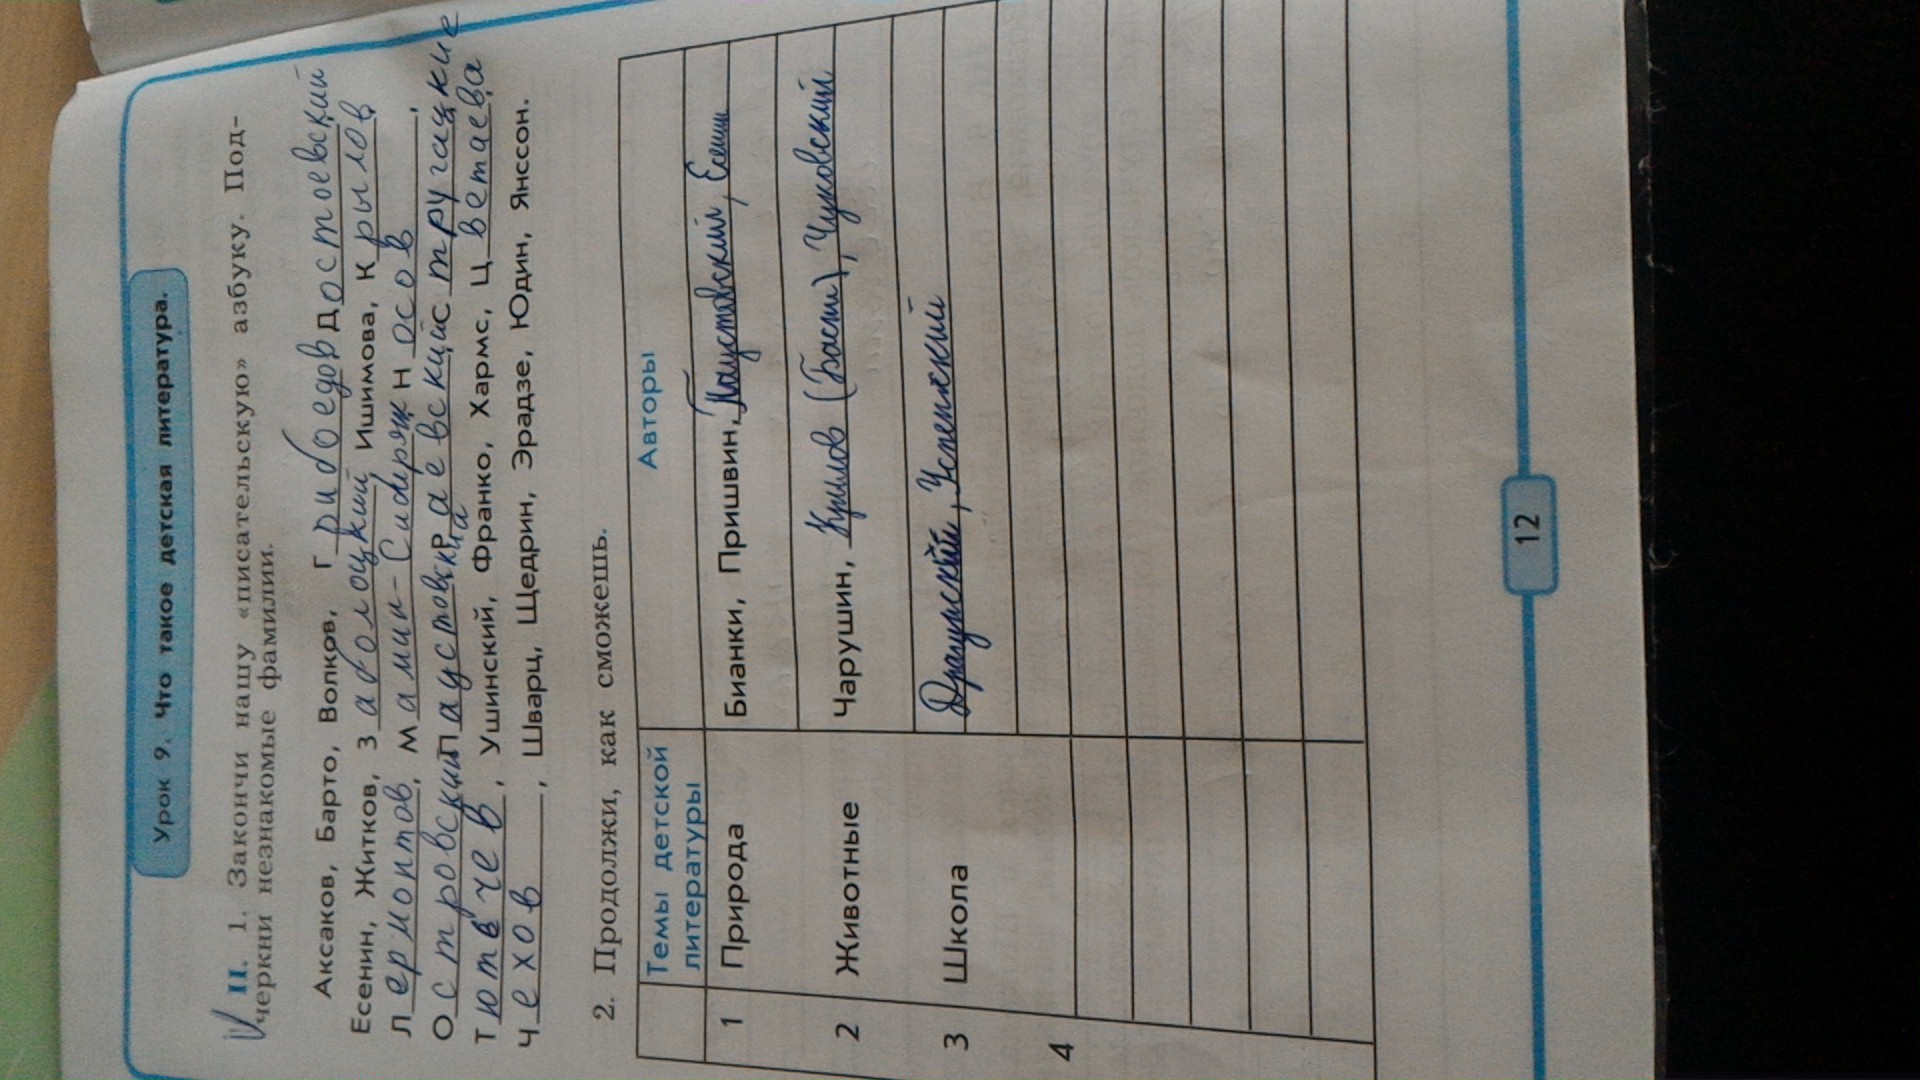 Урок 9. Что такое детская литература.
II. 1. Закончи нашу «писательскую» азбуку. Под-
черкни незнакомые фамилии.
Аксаков, Барто, Волков, Грибоедов Достоевский
Есенин, Житков, Заболоцкий, Ишимова, Крылов,
Лермонтов, Мамин-Сибиряк Носов,
Островский Паустовский Раевский Стругацкие
Тютвчев, Ушинский, Франко, Хармс, Цветаева,
Чехов, Шварц, Щедрин, Эрадзе, Юдин, Янссон.
2. Продолжи, как сможешь.
Темы детской литературы Авторы
1 Природа Бианки, Пришвин, Паустовский, Есенин
2 Животные Чарушин, Крылов (Басни), Чуковский
3 Школа Драгунский, Успенский
4
12